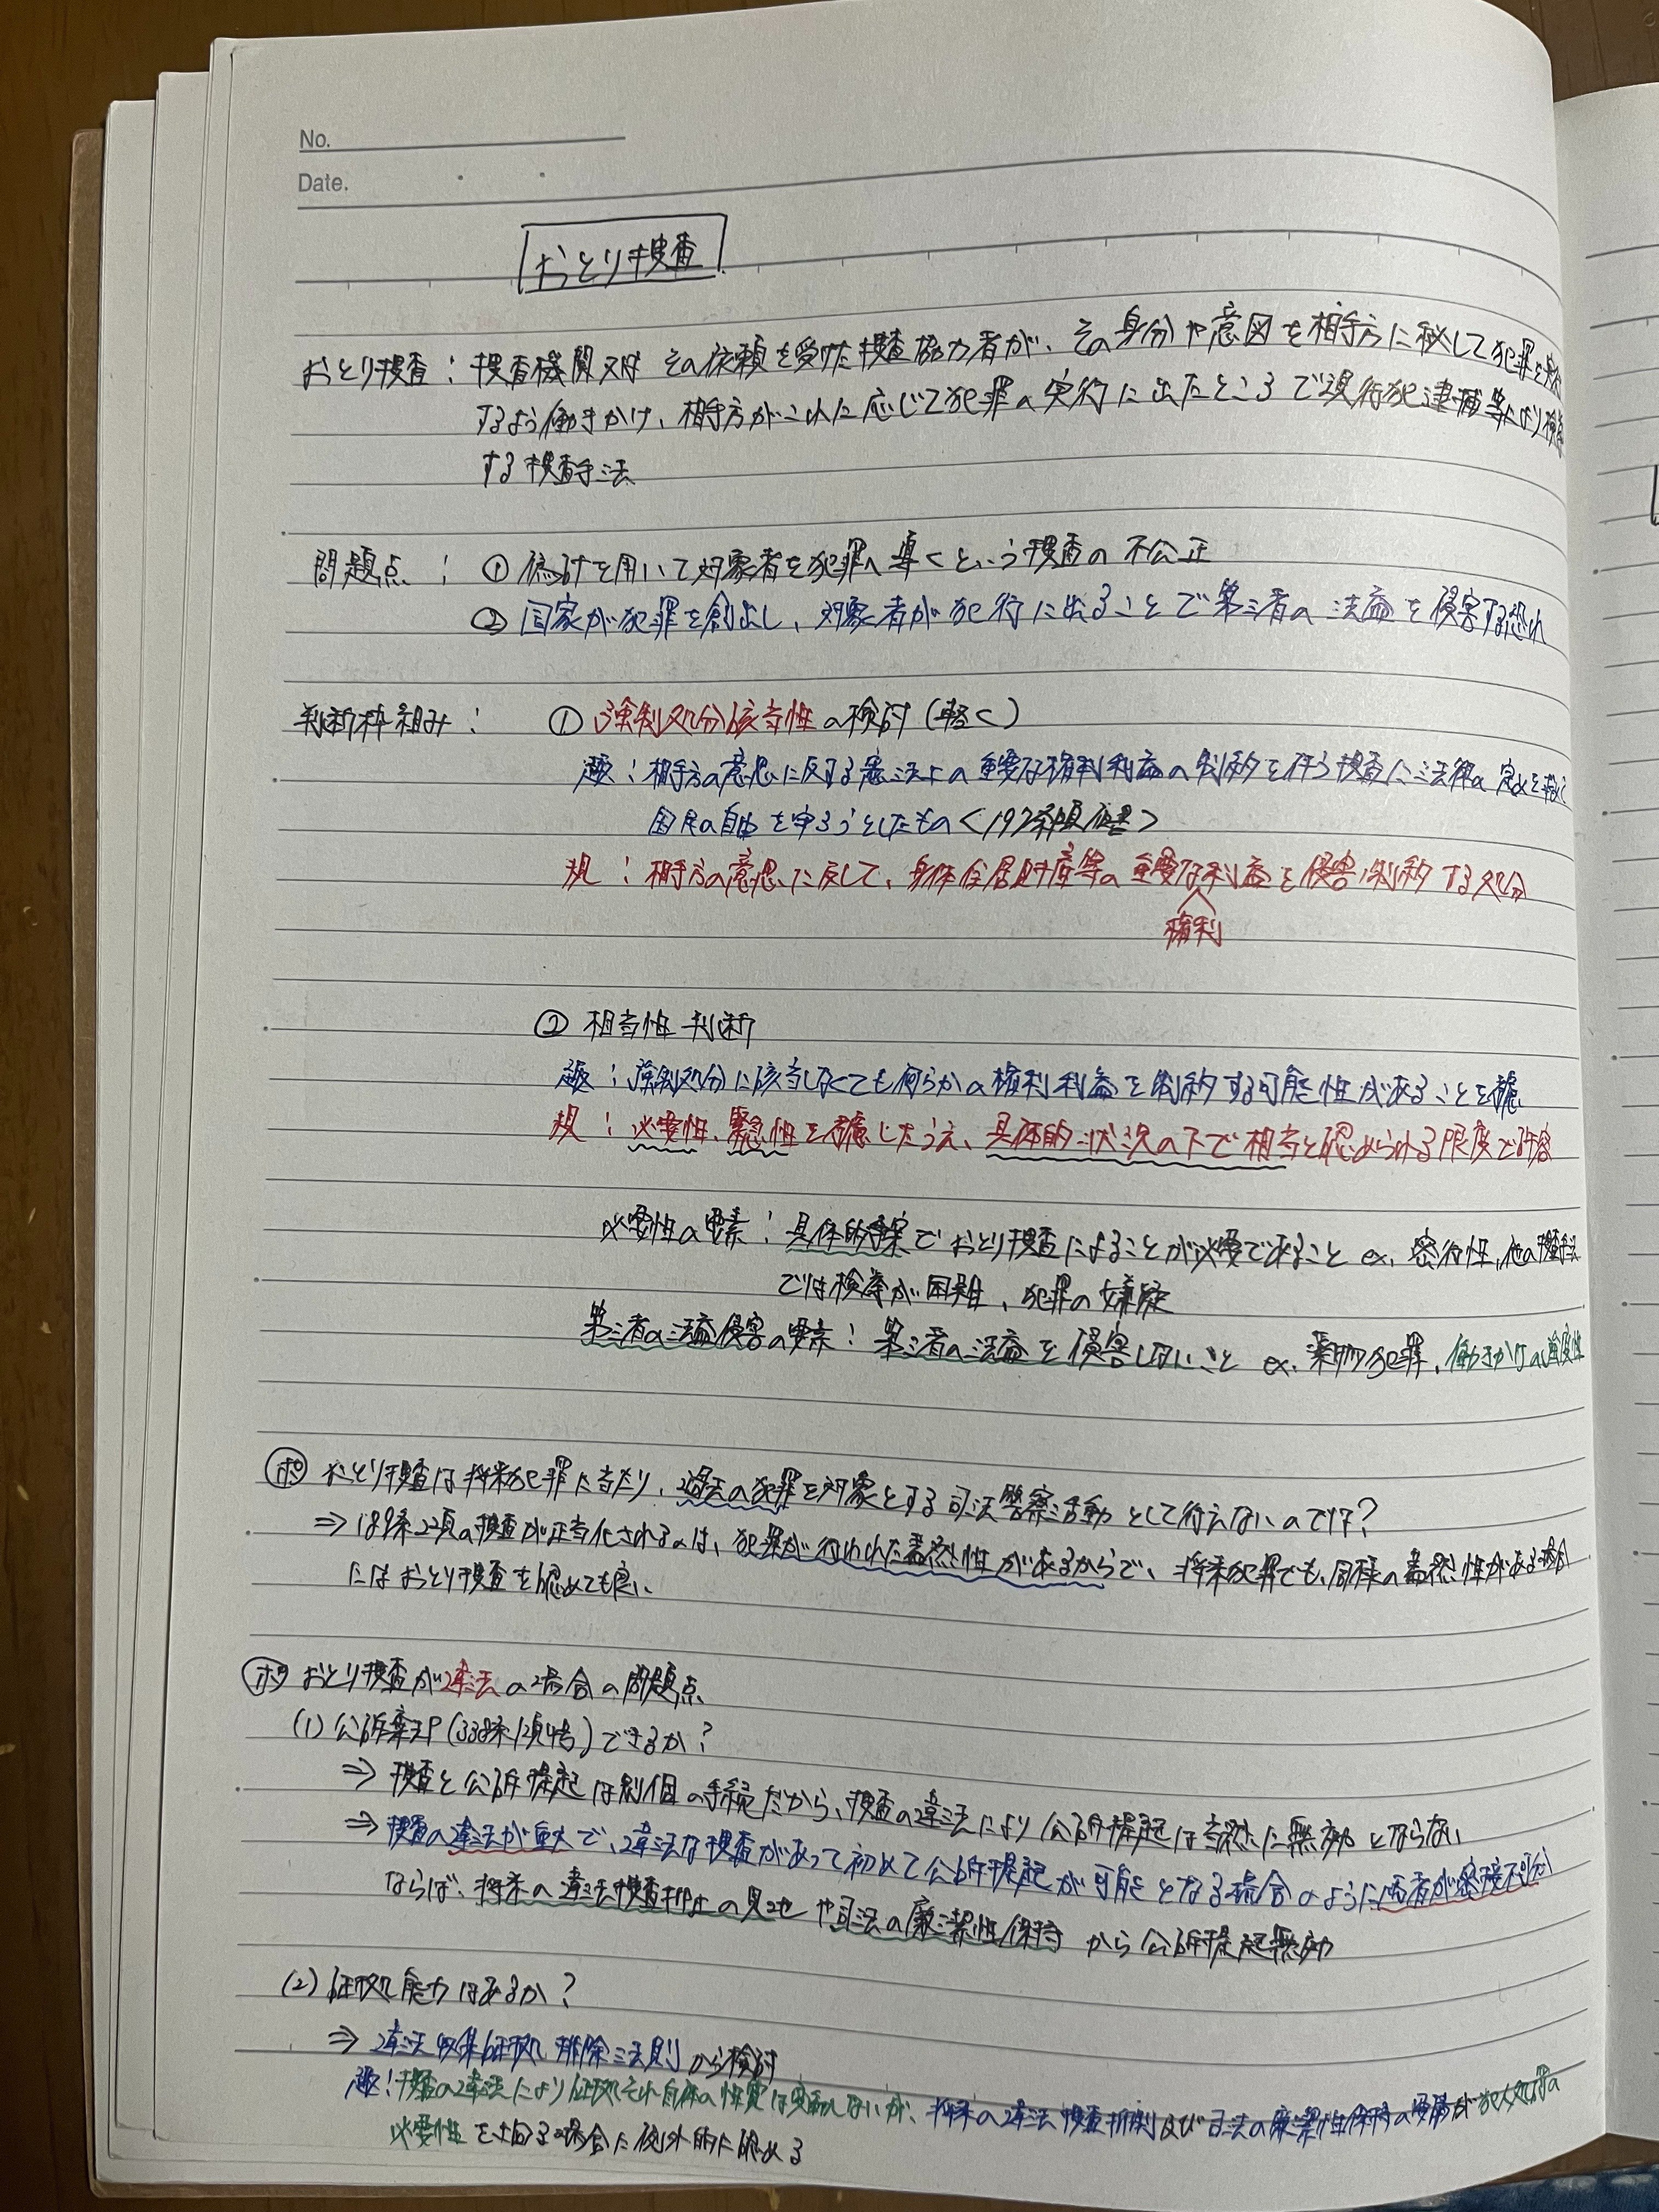 No.
Date.
おとり捜査
おとり捜査：捜査機関又は その依頼を受けた捜査協力者が、その身分や意図を相手方に秘して犯罪を実行
するよう働きかけ、相手方がこれに応じて犯罪の実行に出たところで現行犯逮捕等により検挙
する捜査手法
問題点：① 偽計を用いて対象者を犯罪へ導くという捜査の不公正
② 国家が犯罪を創出し、対象者が犯行に出ることで第三者の法益を侵害する恐れ
判断枠組み：① 強制処分該当性の検討（軽く）
趣：相手方の意思に反する憲法上の重要な権利利益の制約を伴う捜査に法律の定めを
国民の自由を守ろうとしたもの＜197条1項但書＞
規：相手方の意思に反して、身体住居財産等の重要な利益を侵害制約する処分
権利
② 相当性判断
趣：強制処分に該当しなくても何らかの権利利益を制約する可能性があることを考慮
規：必要性、緊急性を考慮したうえ、具体的状況の下で相当と認められる限度で許容
必要性の要素：具体的事案でおとり捜査によることが必要であること ex. 密行性，他の捜査手法
では検挙が困難、犯罪の嫌疑
第三者の法益侵害の要素：第三者の法益を侵害しないこと ex. 薬物犯罪，働きかけの
ポ おとり捜査は将来犯罪に当たり、過去の犯罪を対象とする司法警察活動として行えないのでは？
⇒ 189条2項の捜査が正当化されるのは、犯罪が行われた蓋然性があるからで、将来犯罪でも、同様の蓋然性がある場合
にはおとり捜査を認めても良い
ポ おとり捜査が違法の場合の問題点
(1) 公訴棄却（338条1項4号）できるか？
⇒ 捜査と公訴提起は別個の手続だから、捜査の違法により公訴提起は当然に無効とならない
⇒ 捜査の違法が重大で、違法な捜査があって初めて公訴提起が可能となる場合のように両者が密接不可分
ならば、将来の違法捜査抑止の見地や司法の廉潔性保持から公訴提起無効
(2) 証拠能力はあるか？
⇒ 違法収集証拠排除法則から検討
趣：捜査の違法により証拠それ自体の性質は変動しないが、将来の違法捜査抑制及び司法の廉潔性保持の要請が犯人処罰の
必要性を上回る場合に例外的に認める